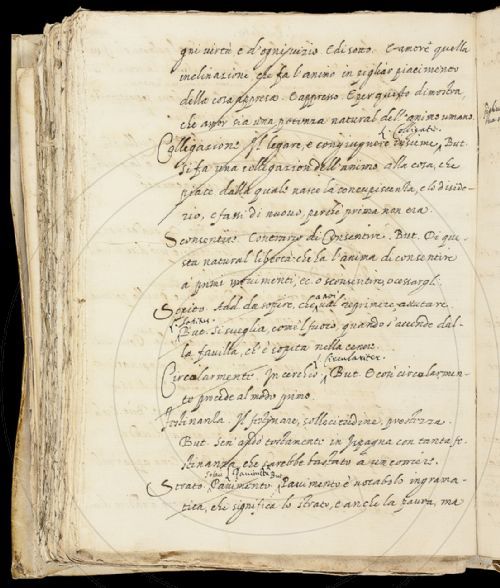 gni virtù e d'ogni vizio. E di sotto. E amore quella
inclinazione che fa l'animo in pigliar piacimento
della cosa appresa. E appresso. E per questo dimostra,
che amor sia una potenza natural dell'animo umano.
Colligazione. Il legare, e congiugnere insieme. But.
Colligatio.
si fa una colligazion dell'animo alla cosa, che
piace dalla quale nasce la concupiscenza, e lo diside-
rio, e fassi di nuovo, perchè prima non era
Sconsentire. Contrario di Consentire. But. Di que-
sta natural libertà che ha l'anima di consentire
a primi movimenti, ec. o sconsentire, o cessargli.
Sopito. Add. da sopire, che val reprimere, attutare.
a noi
Sopitus.
But. Si sveglia, come 'l fuoco, quando s'accende dal-
la favilla, ch'è sopita nella cenere.
Circulariter.
Circolarmente. In cerchio. But. E così circolarmen-
te procede al modo primo.
Festinanza. Il festinare, sollecitudine, prestezza.
But. Sen'andò tostamente in Ispagna con tanta fe-
stinanza, che sarebbe bastato a un corriere.
Strato. Pavimento. But. Pavimento è vocabolo in grama-
tica, che significa lo strato, e anche la paura, ma